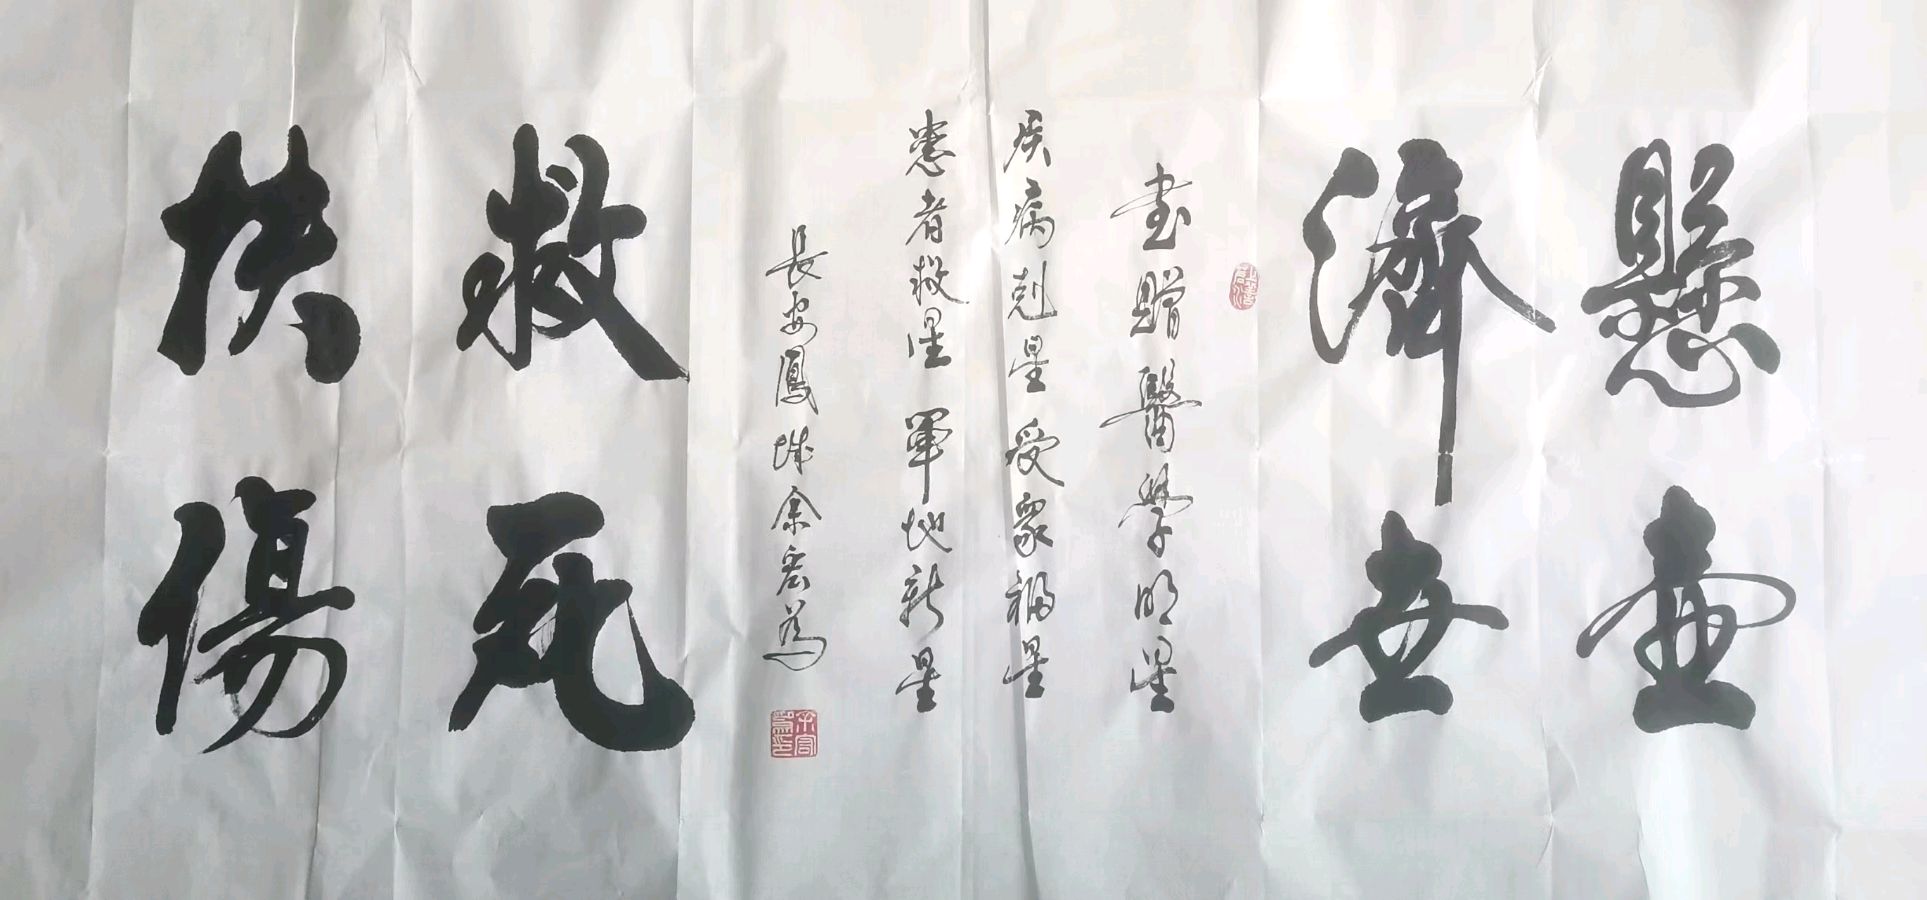 懸壺
濟世
書贈醫學明星
疾病剋星受眾福星
患者救星軍地新星
長安鳳城余宏為
救死
扶傷